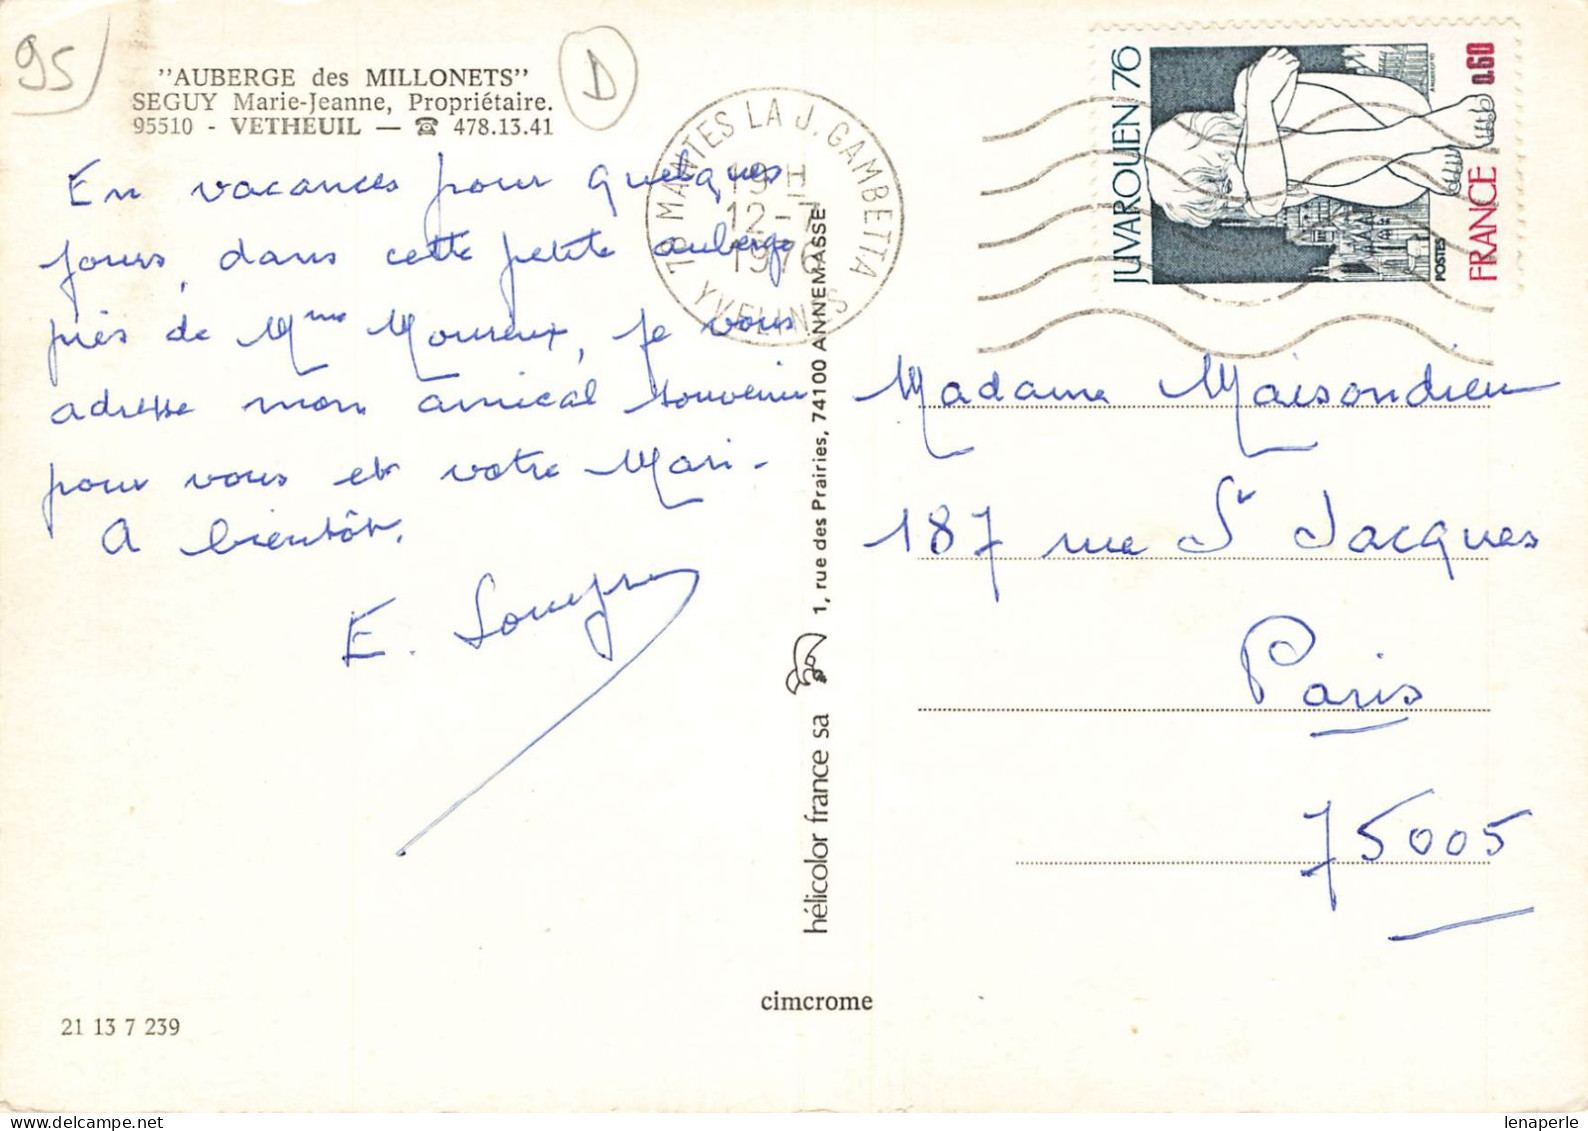 95
"AUBERGE des MILLONETS"
SEGUY Marie-Jeanne, Propriétaire.
95510 - VETHEUIL — ☎ 478.13.41
D
En vacances pour quelques
jours, dans cette petite auberge
près de Mme Moureux, je vous
adresse mon amical souvenir
pour vous et votre Mari -
A bientôt,
E.
21 13 7 239
78 MANTES LA J. GAMBETTA
19 H
12-7
1976
YVELINES
JUVAROUEN 76
POSTES
FRANCE 0.60
Madame Maisondieu
187 rue St Jacques
Paris
75005
hélicolor france sa 1, rue des Prairies, 74100 ANNEMASSE
cimcrome
lenaperle